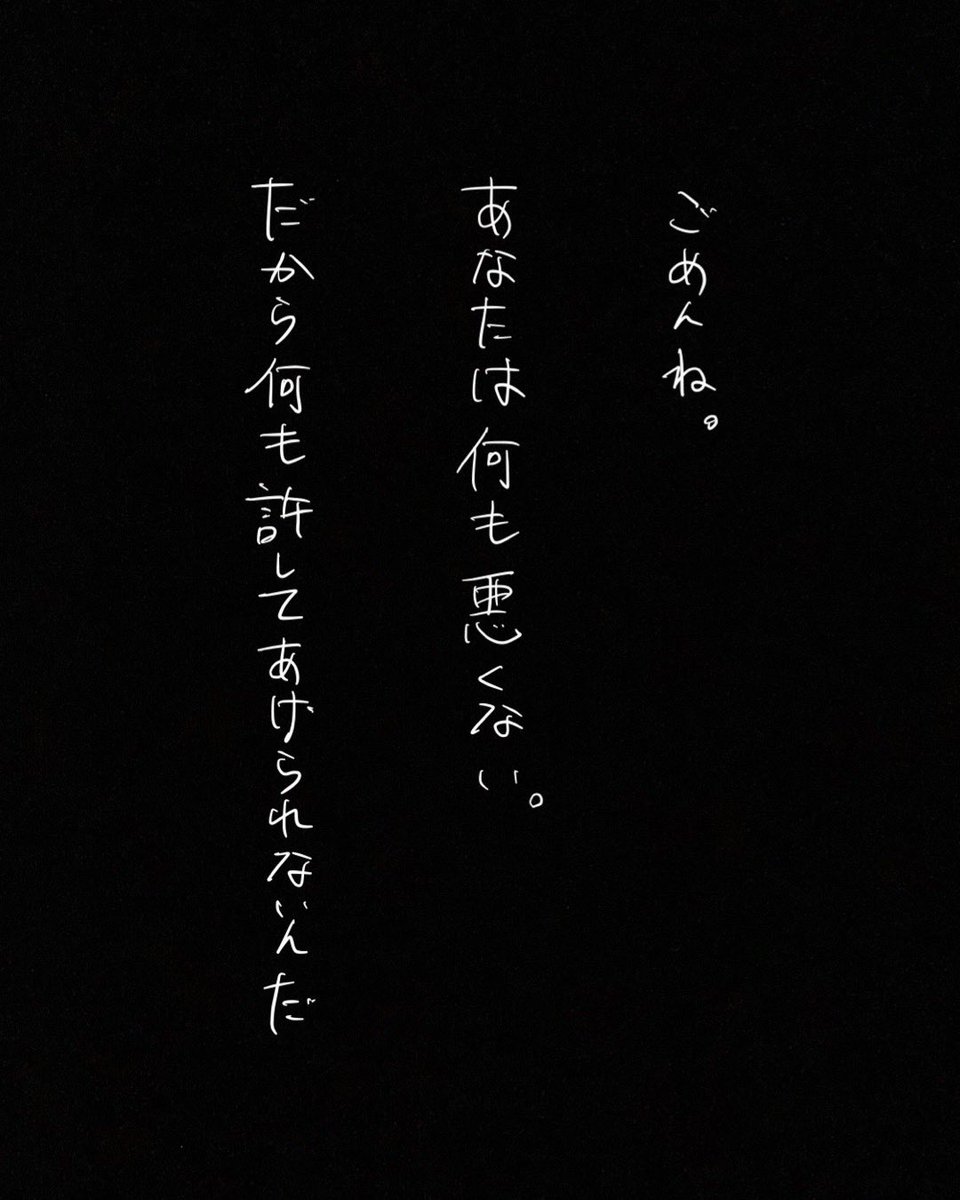 ごめんね。
あなたは何も悪くない。
だから何も許してあげられないんだ